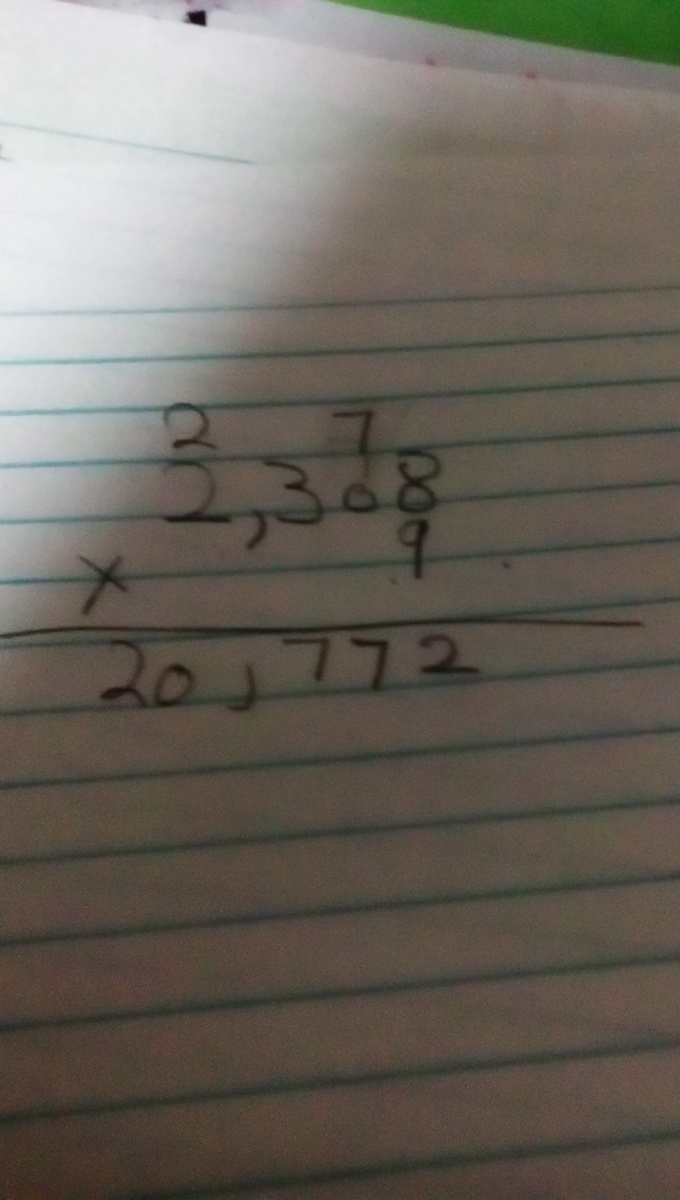 2 7
2,308
× 9
20,772